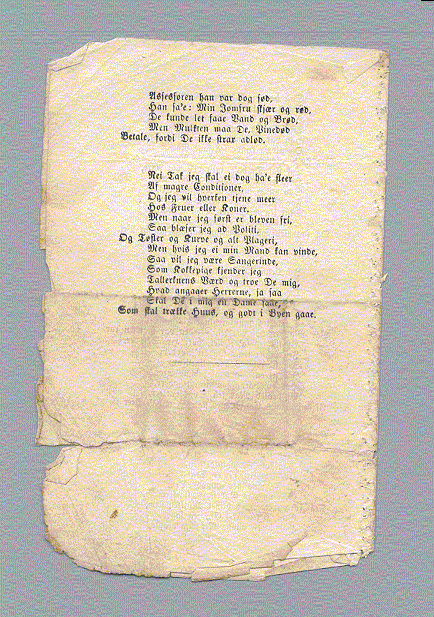 Assessoren han var dog sød,
Han sa'e: Min Jomfru skjær og rød,
De kunde let faae Vand og Brød,
Men Mulkten maa De, Pinedød
Betale, fordi De ikke strax adlød.
Nei Tak jeg skal ei dog ha'e fleer
Af magre Conditioner,
Og jeg vil hverken tjene meer
Hos Fruer eller Koner,
Men naar jeg først er bleven fri,
Saa blæser jeg ad Politi,
Og Tøfler og Kurve og alt Plageri,
Men hvis jeg ei min Mand kan vinde,
Saa vil jeg være Sangerinde,
Som Kokkepige kjender jeg
Tallerknens Værd og troe De mig,
Hvad angaaer Herrerne, ja saa
Skal De i mig en Dame faae,
Som skal trække Huus, og godt i Byen gaae.